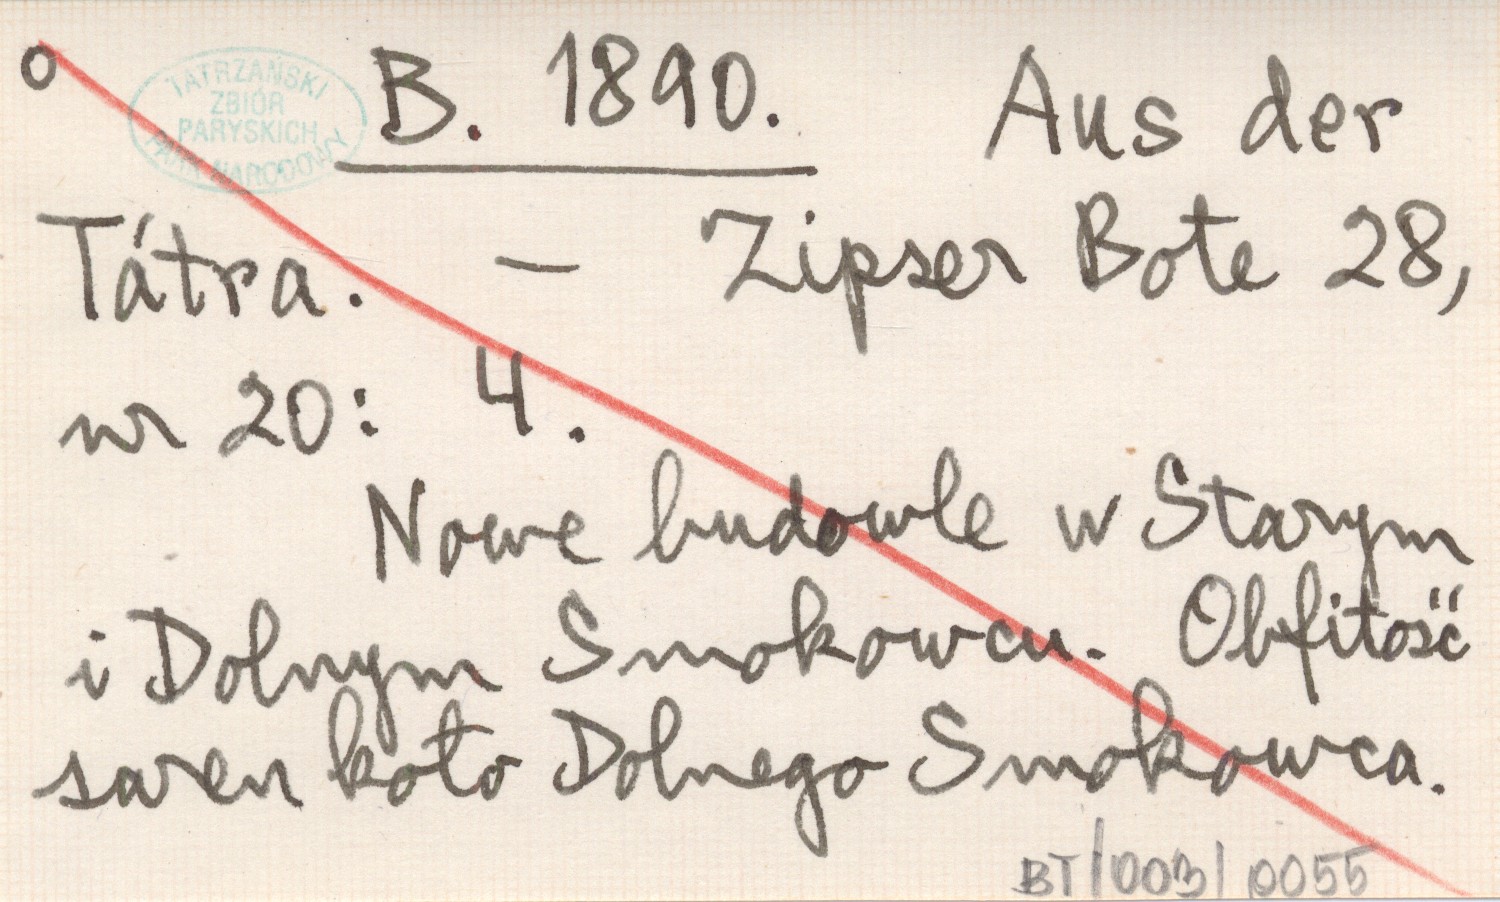 o
TATRZAŃSKI
ZBIÓR
PARYSKICH
PARK NARODOWY
B. 1890. Aus der
Tátra. — Zipser Bote 28,
nr 20: 4.
Nowe budowle w Starym
i Dolnym Smokowcu. Obfitość
saren koło Dolnego Smokowca.
BT/003/0055